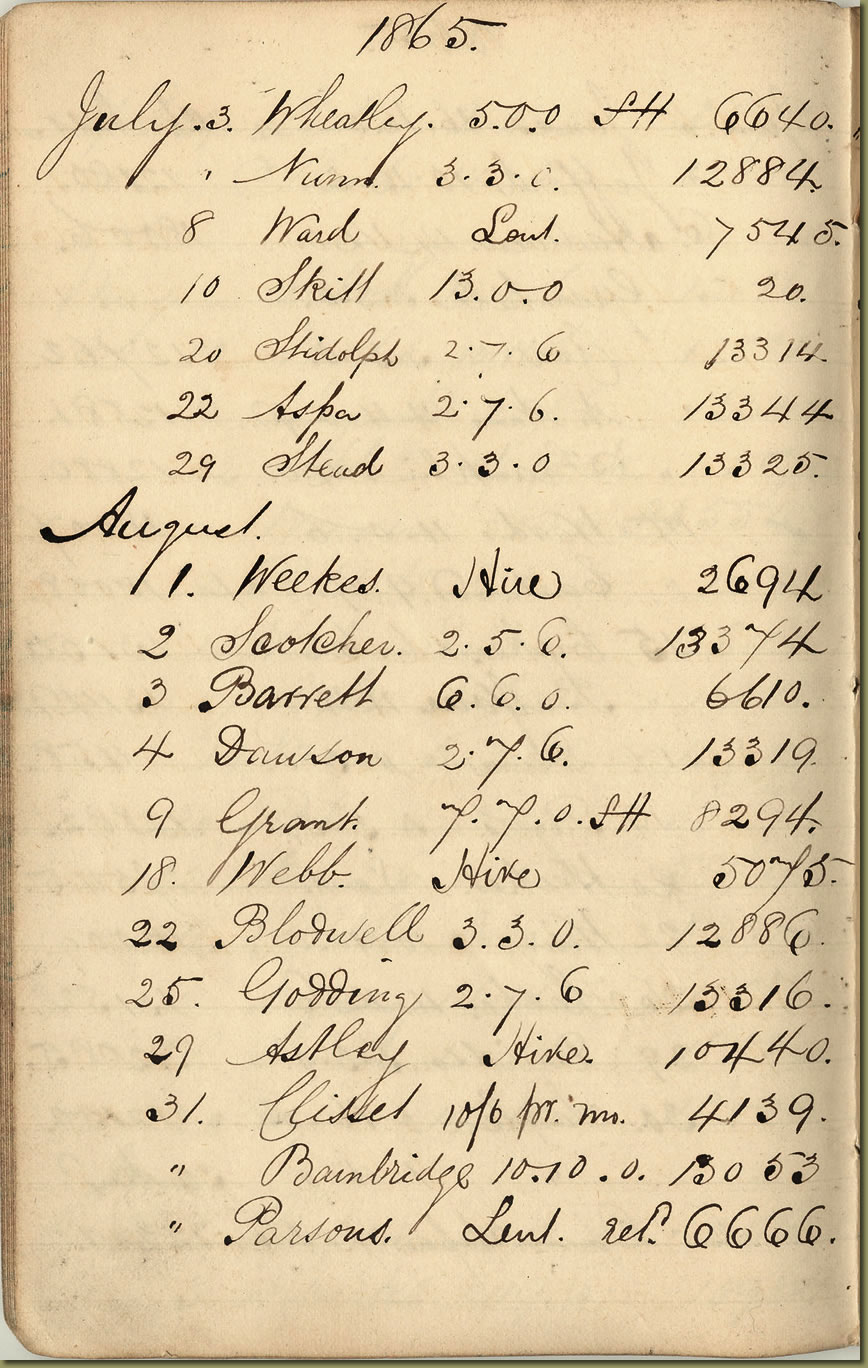 1865.
July. 3. Wheatley. 5.0.0 SH 6640.
" Nunn. 3.3.0. 12884.
8 Ward Lent. 7545.
10 Skill 13.0.0 20.
20 Stidolph 2.7.6 13314.
22 Aspa 2.7.6. 13344
29 Stead 3.3.0 13325.
August.
1. Weekes. Hire 2694
2 Scotcher. 2.5.6. 13374
3 Barrett 6.6.0. 6610.
4 Dawson 2.7.6. 13319.
9 Grant. 7.7.0. SH 8294.
18. Webb. Hire 5075.
22 Blodwell 3.3.0. 12886.
25. Godding 2.7.6 13316.
29 Astley Hire. 10440.
31. Clisset 10/6 pr. mo. 4139.
" Bambridge 10.10.0. 13053
" Parsons. Lent. retd. 6666.